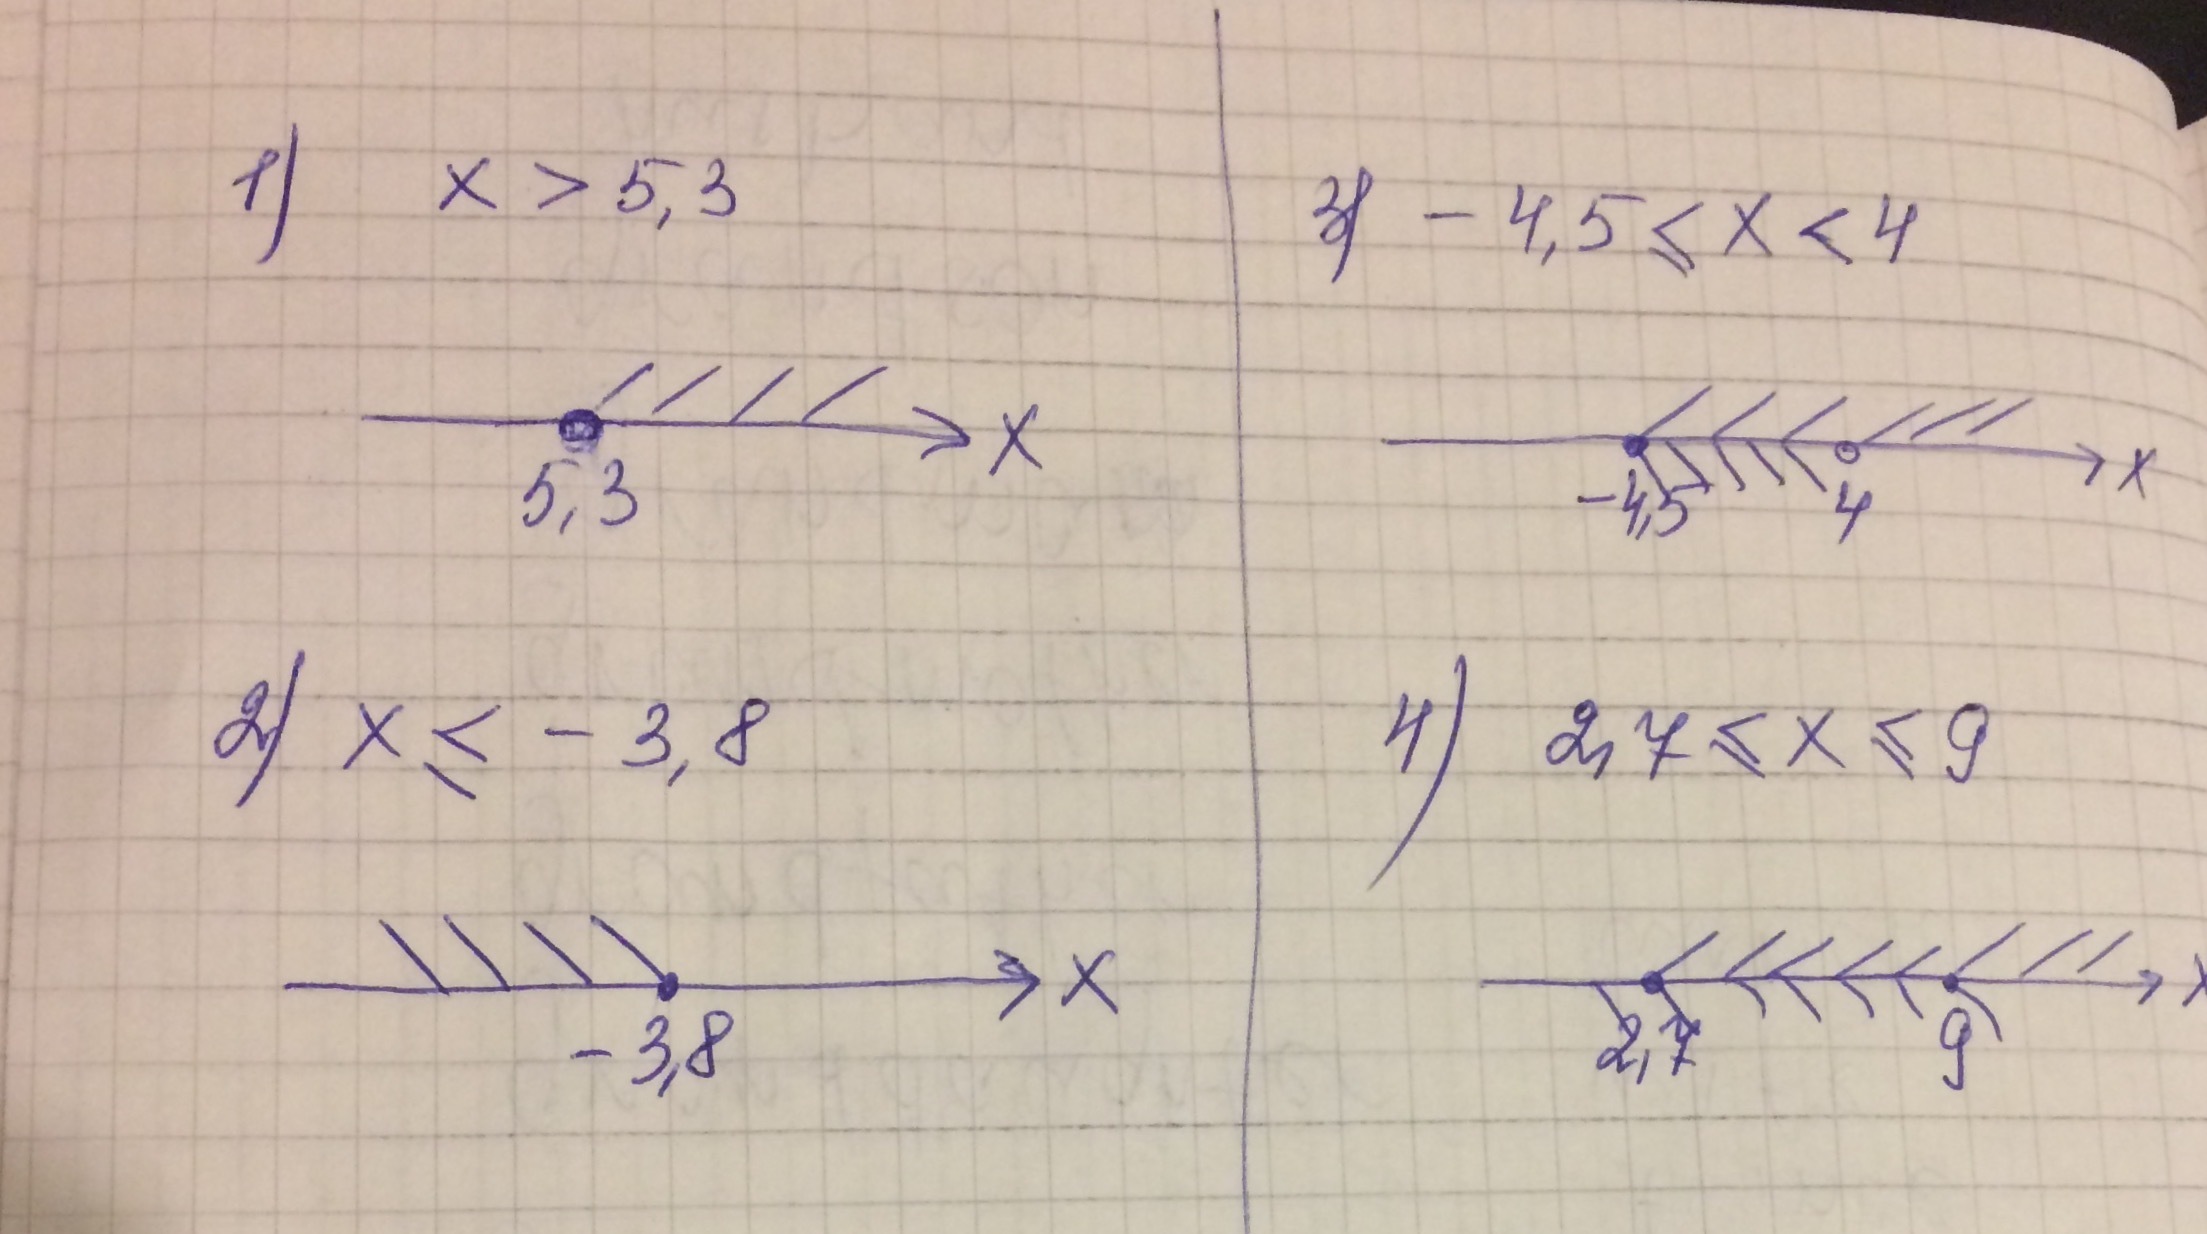 1) x > 5,3
x
5,3
2) x ≤ - 3,8
x
-3,8
3) - 4,5 ≤ x < 4
x
-4,5 4
4) 2,7 ≤ x ≤ 9
x
2,7 9